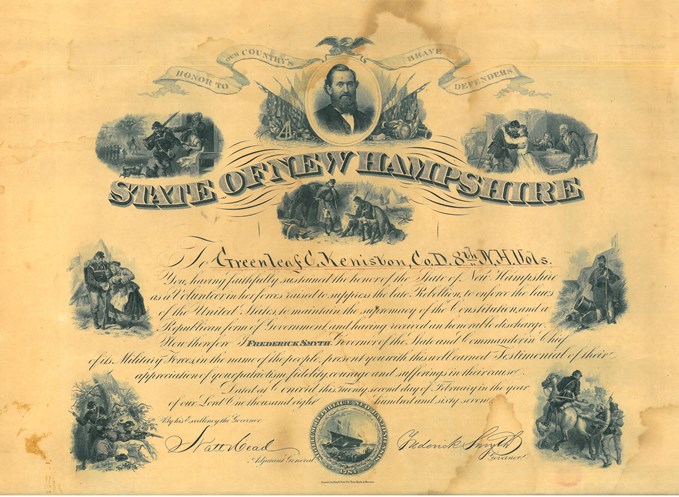 HONOR TO OUR COUNTRY'S BRAVE DEFENDERS
STATE OF NEW HAMPSHIRE
To Greenleaf C. Keniston, Co. D. 8th N.H. Vols.
You, having faithfully sustained the honor of the State of New Hampshire
as a Volunteer in her forces raised to suppress the late Rebellion, to enforce the laws
of the United States, to maintain the supremacy of the Constitution, and a
Republican form of Government, and having received an honorable discharge,
Now therefore I FREDERICK SMYTH Governor of the State and Commander in Chief
of its Military Forces, in the name of the people, present you with this well earned Testimonial of their
appreciation of your patriotism, fidelity, courage and sufferings in their cause.
Dated at Concord this twenty second day of February in the year
of our Lord One thousand eight hundred and sixty seven
By his Excellency the Governor.
Natt Head
Adjutant General
Frederick Smyth
Governor